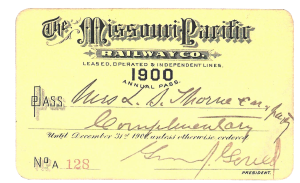 The Missouri Pacific
RAILWAY CO.
LEASED, OPERATED & INDEPENDENT LINES.
1900
ANNUAL PASS.
PASS Mrs L. S. Thorne
Complimentary
Until December 31st 1900 unless otherwise ordered
No A 128
PRESIDENT.